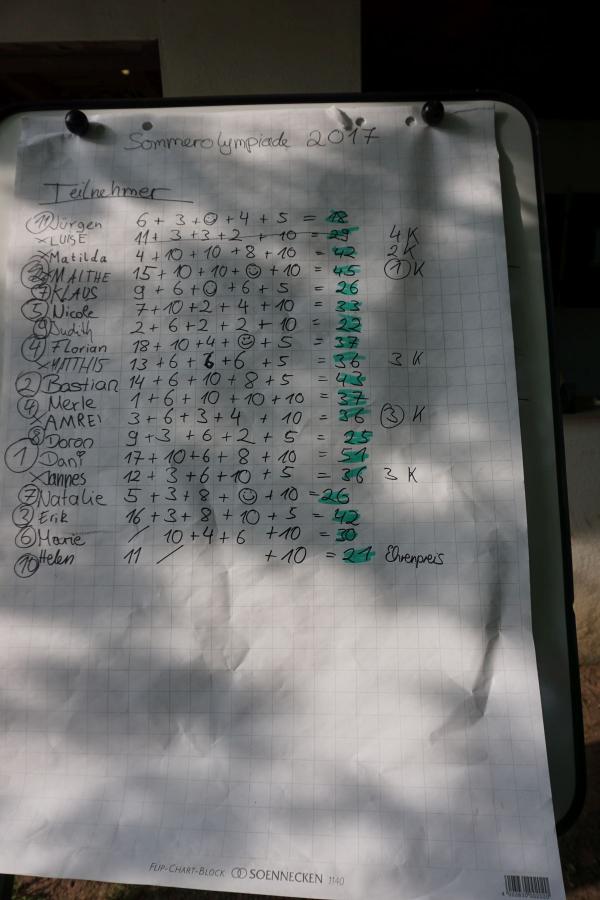 Sommerolympiade 2017
Teilnehmer
11 Jürgen 6 + 3 + ☺ + 4 + 5 = 18
x LUISE 11 + 3 + 3 + 2 + 10 = 29 4 K
x Matilda 4 + 10 + 10 + 8 + 10 = 42 2 K
MALTHE 15 + 10 + 10 + ☺ + 10 = 45 1 K
7 KLAUS 9 + 6 + ☺ + 6 + 5 = 26
5 Nicole 7 + 10 + 2 + 4 + 10 = 33
9 Judith 2 + 6 + 2 + 2 + 10 = 22
4 Florian 18 + 10 + 4 + ☺ + 5 = 37
x MATTHIS 13 + 6 + 6 + 6 + 5 = 36 3 K
2 Bastian 14 + 6 + 10 + 8 + 5 = 43
4 Merle 1 + 6 + 10 + 10 + 10 = 37
x AMREI 3 + 6 + 3 + 4 + 10 = 36 3 K
8 Doron 9 + 3 + 6 + 2 + 5 = 25
1 Dani 17 + 10 + 6 + 8 + 10 = 51
x Hannes 12 + 3 + 6 + 10 + 5 = 36 3 K
7 Natalie 5 + 3 + 8 + ☺ + 10 = 26
3 Erik 16 + 3 + 8 + 10 + 5 = 42
6 Marie / 10 + 4 + 6 + 10 = 30
10 Helen 11 / + 10 = 21 Ehrenpreis
FLIP-CHART-BLOCK SOENNECKEN 1140